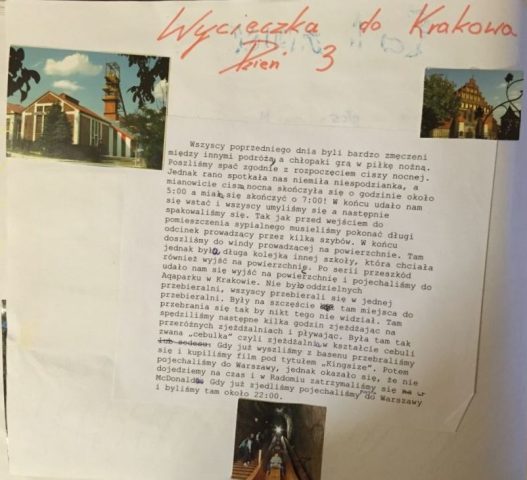 Wycieczka do Krakowa
Dzień 3
Wszyscy poprzedniego dnia byli bardzo zmęczeni
między innymi podróżą a chłopaki grą w piłkę nożną.
Poszliśmy spać zgodnie z rozpoczęciem ciszy nocnej.
Jednak rano spotkała nas niemiła niespodzianka, a
mianowicie cisza nocna skończyła się o godzinie około
5:00 a miała się skończyć o 7:00! W końcu udało nam
się wstać i wszyscy umyliśmy się a następnie
spakowaliśmy się. Tak jak przed wejściem do
pomieszczenia sypialnego musieliśmy pokonać długi
odcinek prowadzący przez kilka szybów. W końcu
doszliśmy do windy prowadzącej na powierzchnie. Tam
jednak była długa kolejka innej szkoły, która chciała
również wyjść na powierzchnię. Po serii przeszkód
udało nam się wyjść na powierzchnię i pojechaliśmy do
Aqaparku w Krakowie. Nie było oddzielnych
przebieralni, wszyscy przebierali się w jednej
przebieralni. Były na szczęście tam miejsca do
przebrania się tak by nikt tego nie widział. Tam
spędziliśmy następne kilka godzin zjeżdżając na
przeróżnych zjeżdżalniach i pływając. Była tam tak
zwana „cebulka" czyli zjeżdżalnia w kształcie cebuli
lub sedesu. Gdy już wyszliśmy z basenu przebraliśmy
się i kupiliśmy film pod tytułem „Kingsize". Potem
pojechaliśmy do Warszawy, jednak okazało się, że nie
dojedziemy na czas i w Radomiu zatrzymaliśmy się na w
McDonald. Gdy już zjedliśmy pojechaliśmy do Warszawy
i byliśmy tam około 22:00.